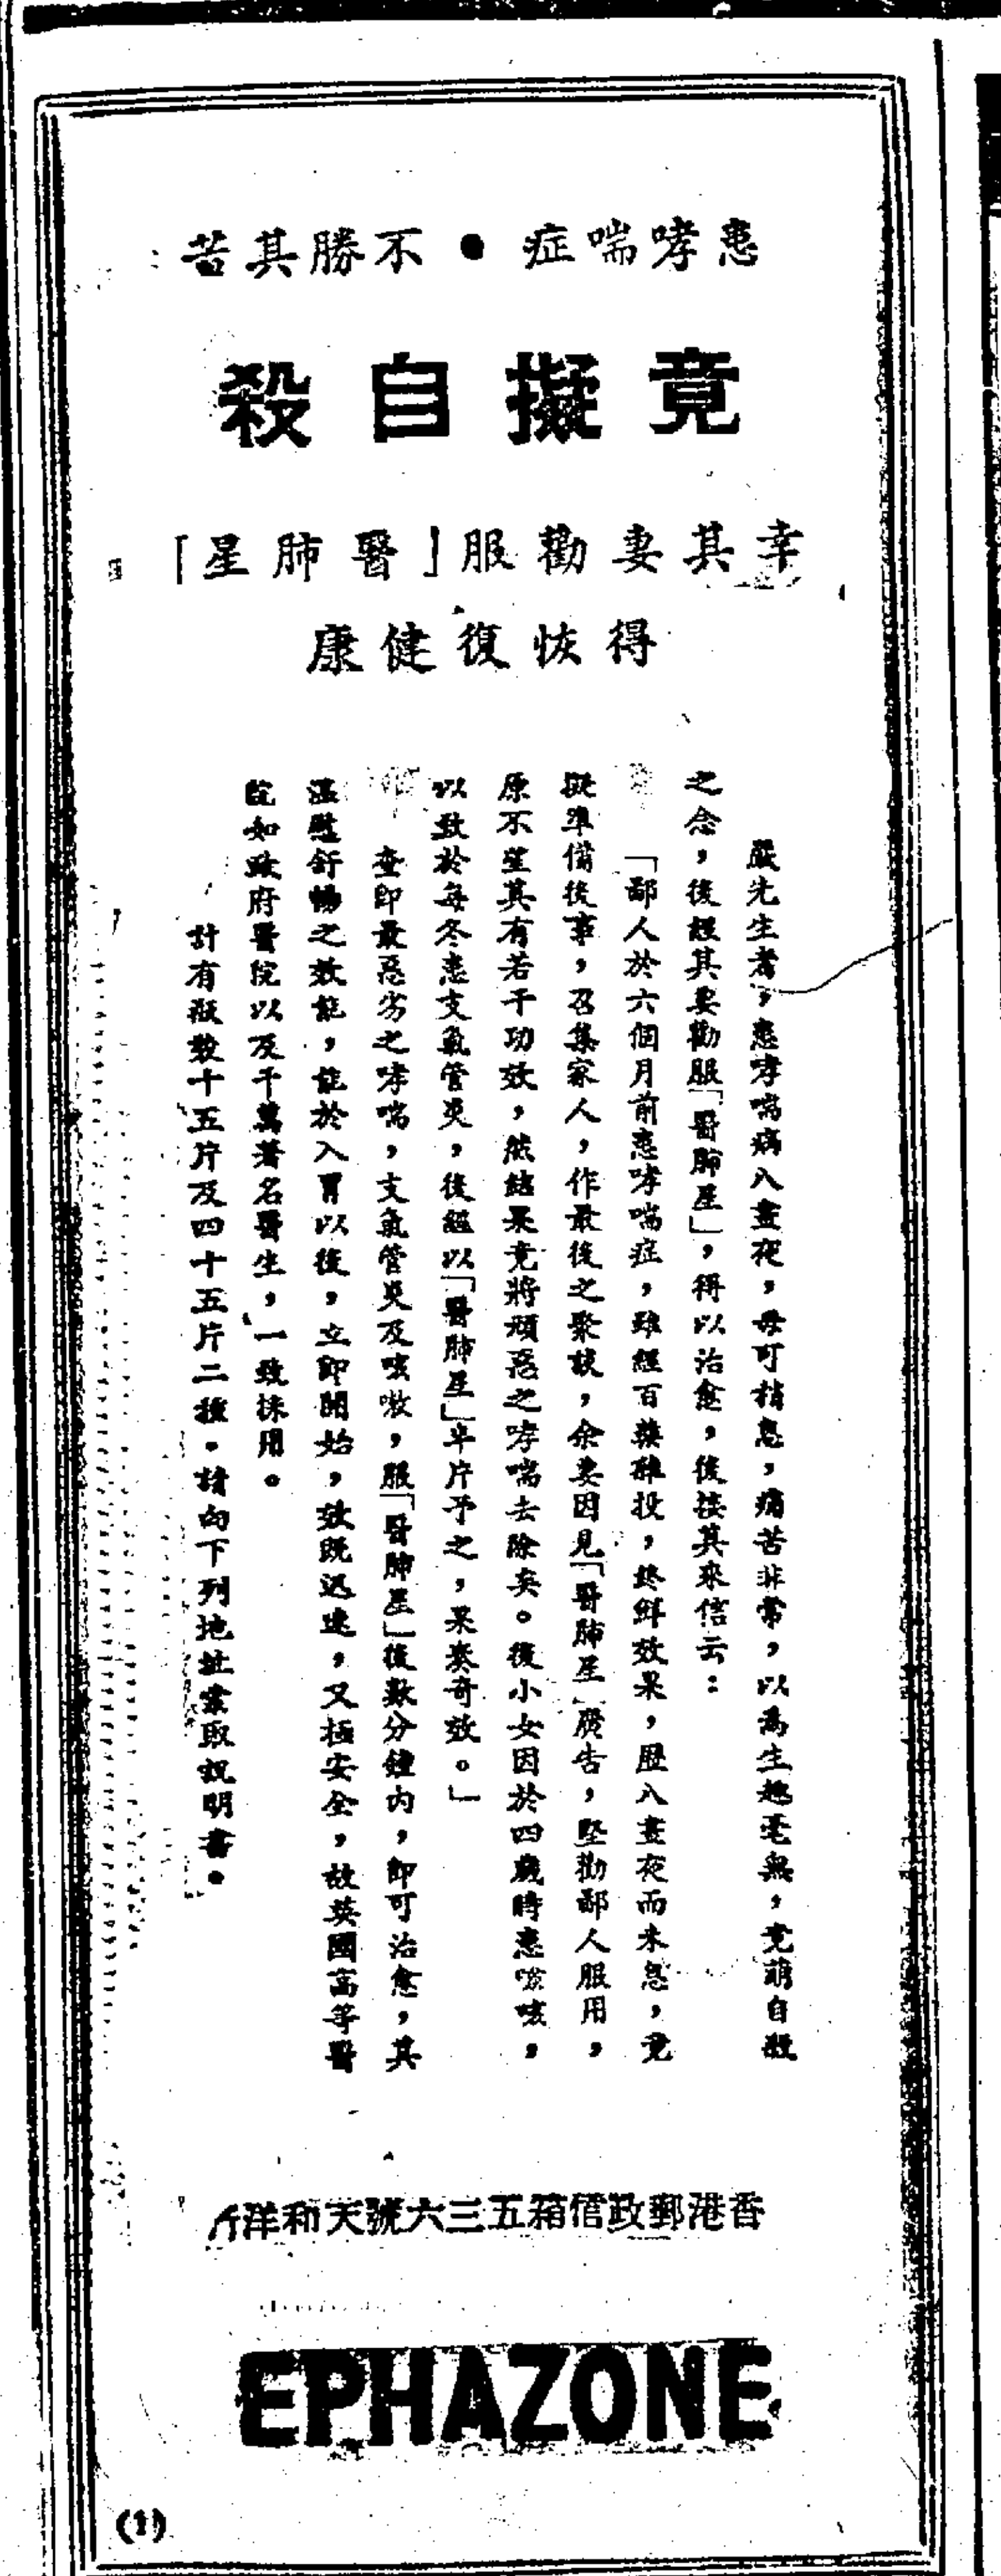 患哮喘症●不勝其苦
竟擬自殺
幸其妻勸服「醫肺星」
得恢復健康
嚴先生者，患哮喘病八晝夜，毋可稍息，痛苦非常，以為生趣毫無，竟萌自殺
之念，後經其妻勸服「醫肺星」，得以治愈，後接其來信云：
「鄙人於六個月前患哮喘症，雖經百藥雜投，終鮮效果，歷八晝夜而未息，竟
擬準備後事，召集家人，作最後之聚談，余妻因見「醫肺星」廣告，堅勸鄙人服用，
原不望其有若干功效，然結果竟將頑惡之哮喘去除矣。後小女因於四歲時患咳，
以致於每冬患支氣管炎，後經以「醫肺星」半片予之，果奏奇效。」
查即最惡劣之哮喘，支氣管炎及咳嗽，服「醫肺星」後數分鐘內，即可治愈，其
溫慰舒暢之效能，能於入胃以後，立即開始，效既迅速，又極安全，故英國高等醫
院如政府醫院以及千萬著名醫生，一致採用。
計有瓶裝十五片及四十五片二種。請向下列地址索取說明書。
香港郵政信箱五三六號天和洋行
EPHAZONE
(1)